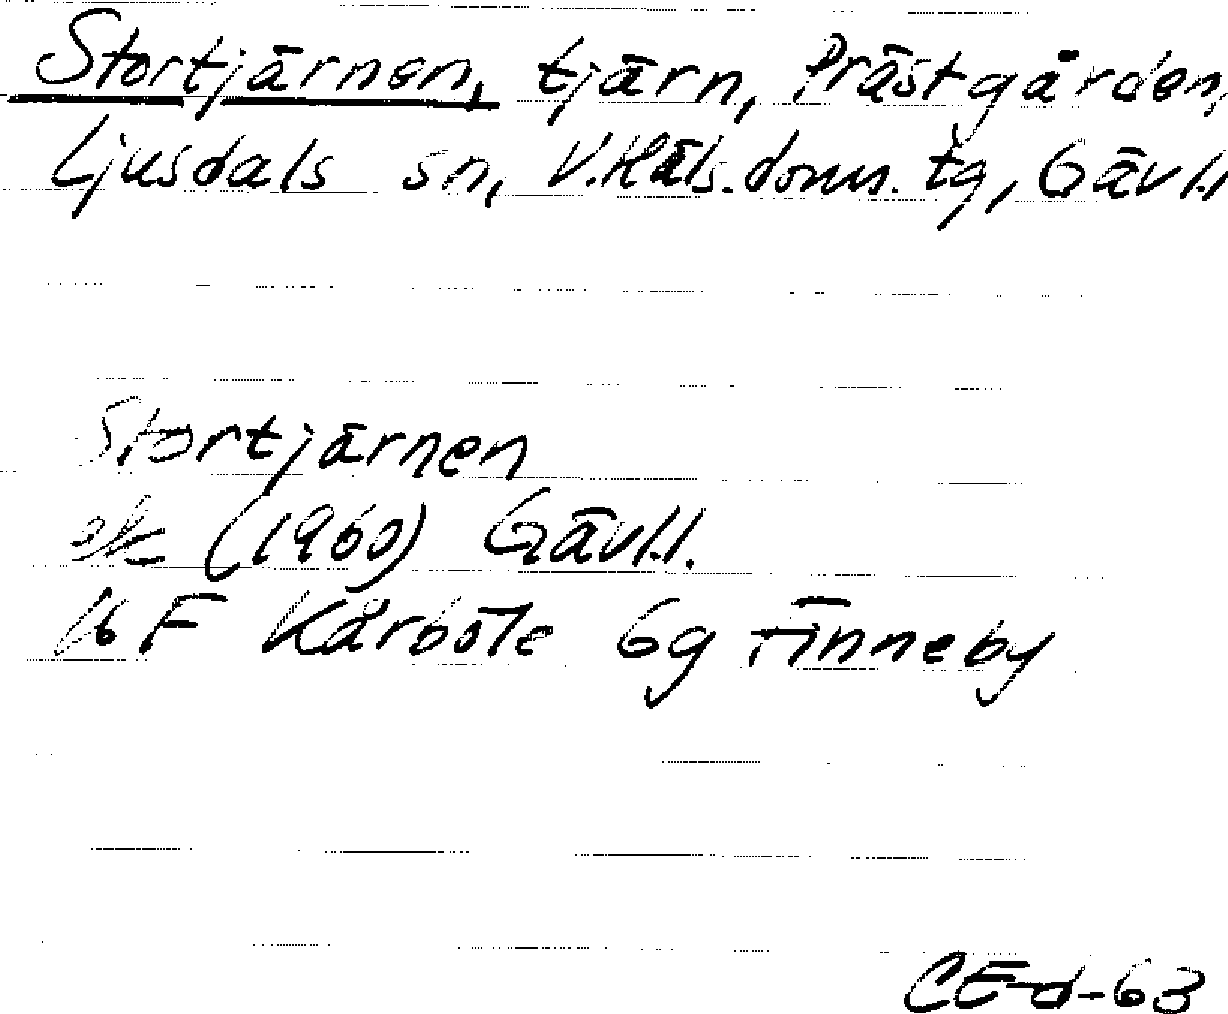 Stortjärnen, tjärn, Prästgården,
Ljusdals sn, V. Häls. doms. tg, Gävl.l
Stortjärnen
ek (1960) Gävl.l.
16 F Kårböle 6g Finneby
CE-d-63